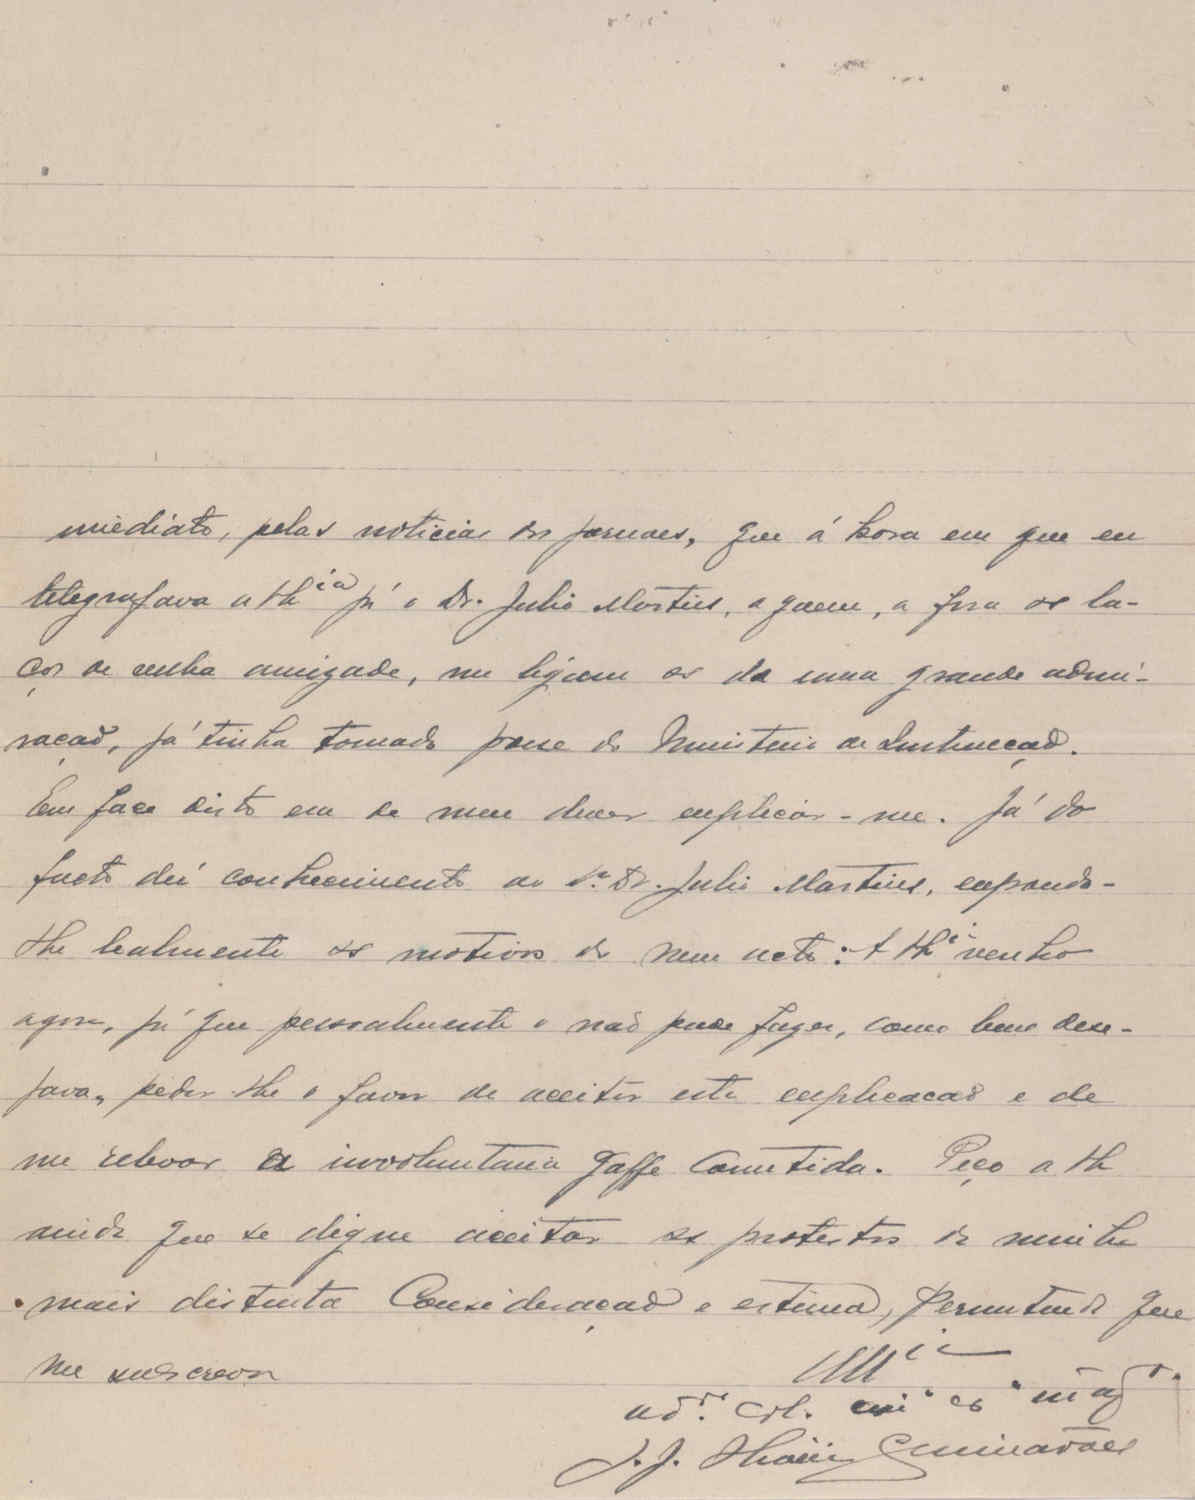 mediato, pelas noticias dos jornaes, que á hora em que eu
telegrafava a já o Dr. Julio Martins, a quem, a fora os la-
ços de velha amizade, me ligam os da uma grande admi-
ração, já tinha tomado posse do Ministerio de Instrucção.
Em face disto era de meu dever explicar-me. Já do
facto dei conhecimento ao Sr. Dr. Julio Martins, expondo-
lhe lealmente os motivos do meu acto: A venho
agora, já que pessoalmente o não pude fazer, como bem dese-
java, pedir-lhe o favor de aceitar esta explicação e de
me relevar a involuntaria gaffe cometida. Peço a
ainda que se digne aceitar os protestos da minha
mais distinta Consideração e estima, permitindo que
me subscreva
J. J. Guimarães